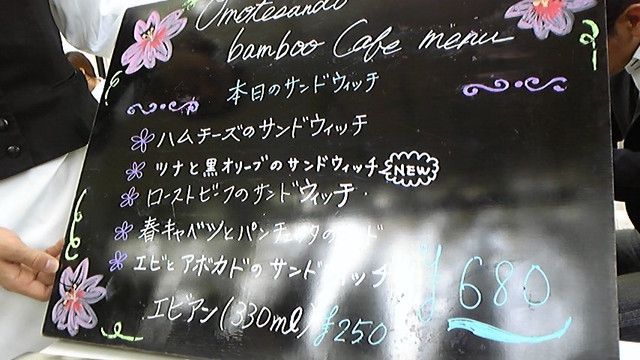 Omotesando
bamboo Cafe menu
本日のサンドウィッチ
ハムチーズのサンドウィッチ
ツナと黒オリーブのサンドウィッチ NEW
ローストビーフのサンドウィッチ
春キャベツとパンチェッタのサンド
エビとアボカドのサンドウィッチ
¥680
エビアン(330ml) ¥250